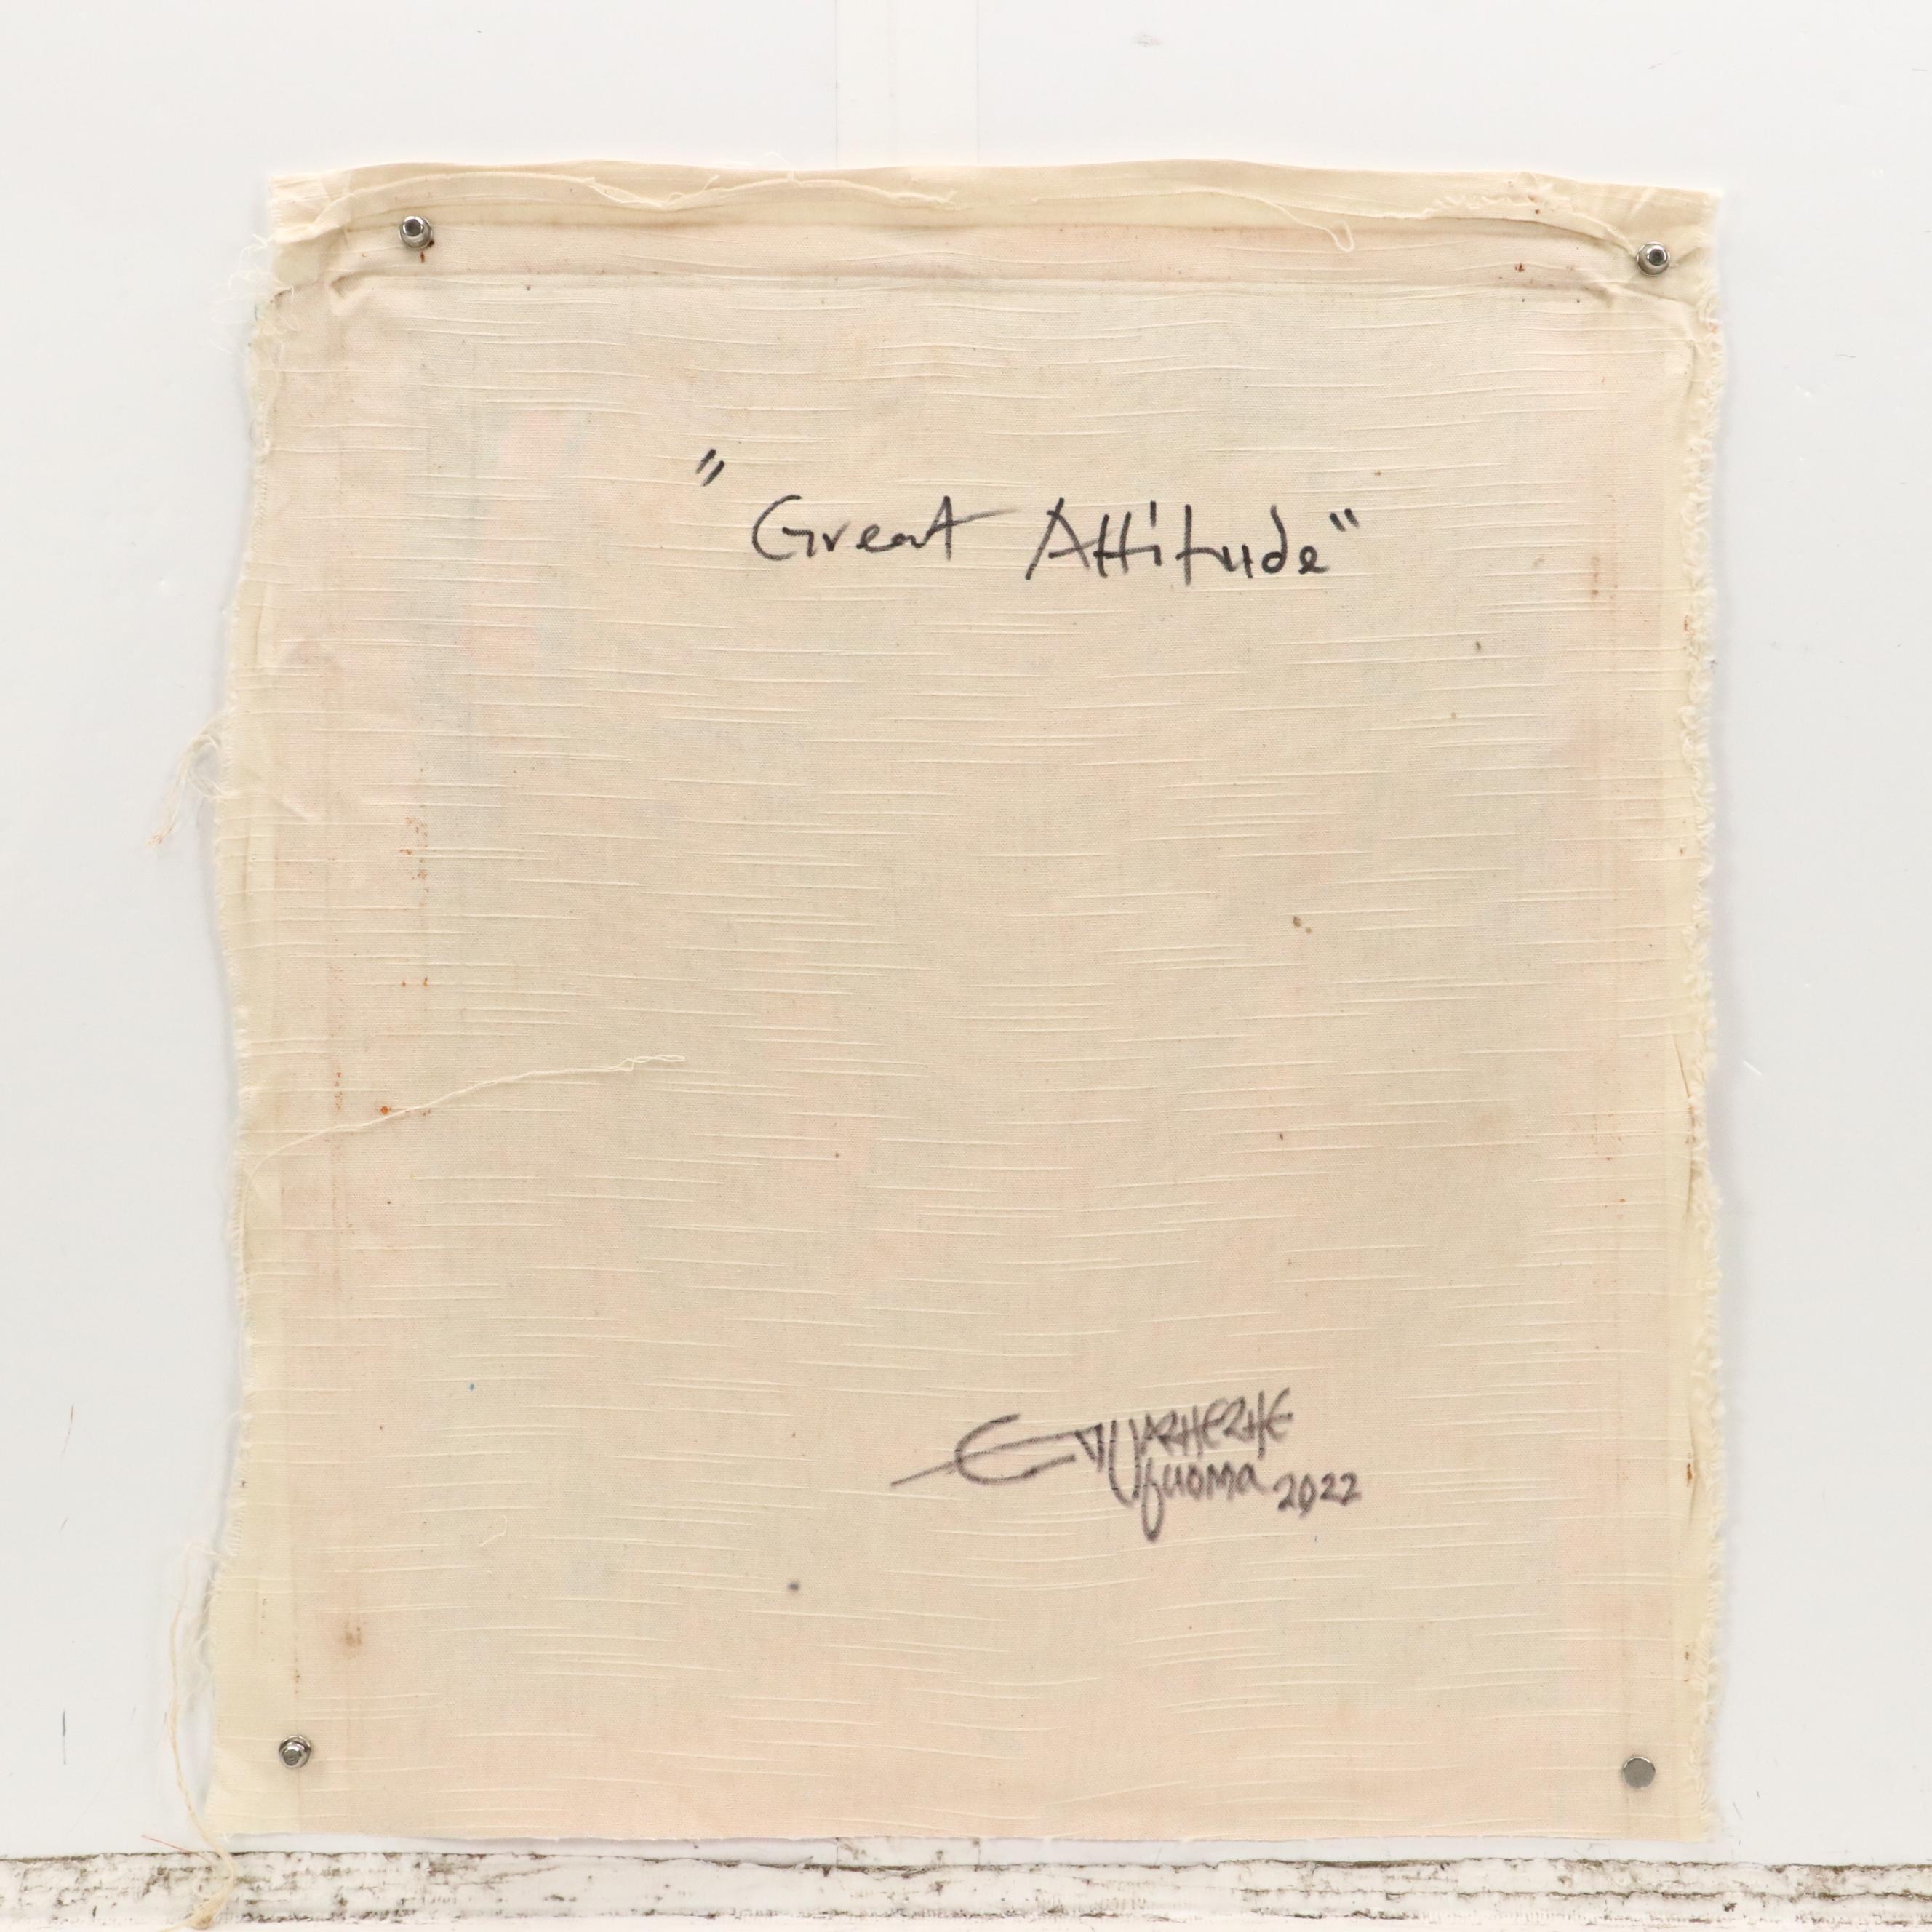 "Great Attitude"
EWARHERHE
Ufuoma 2022